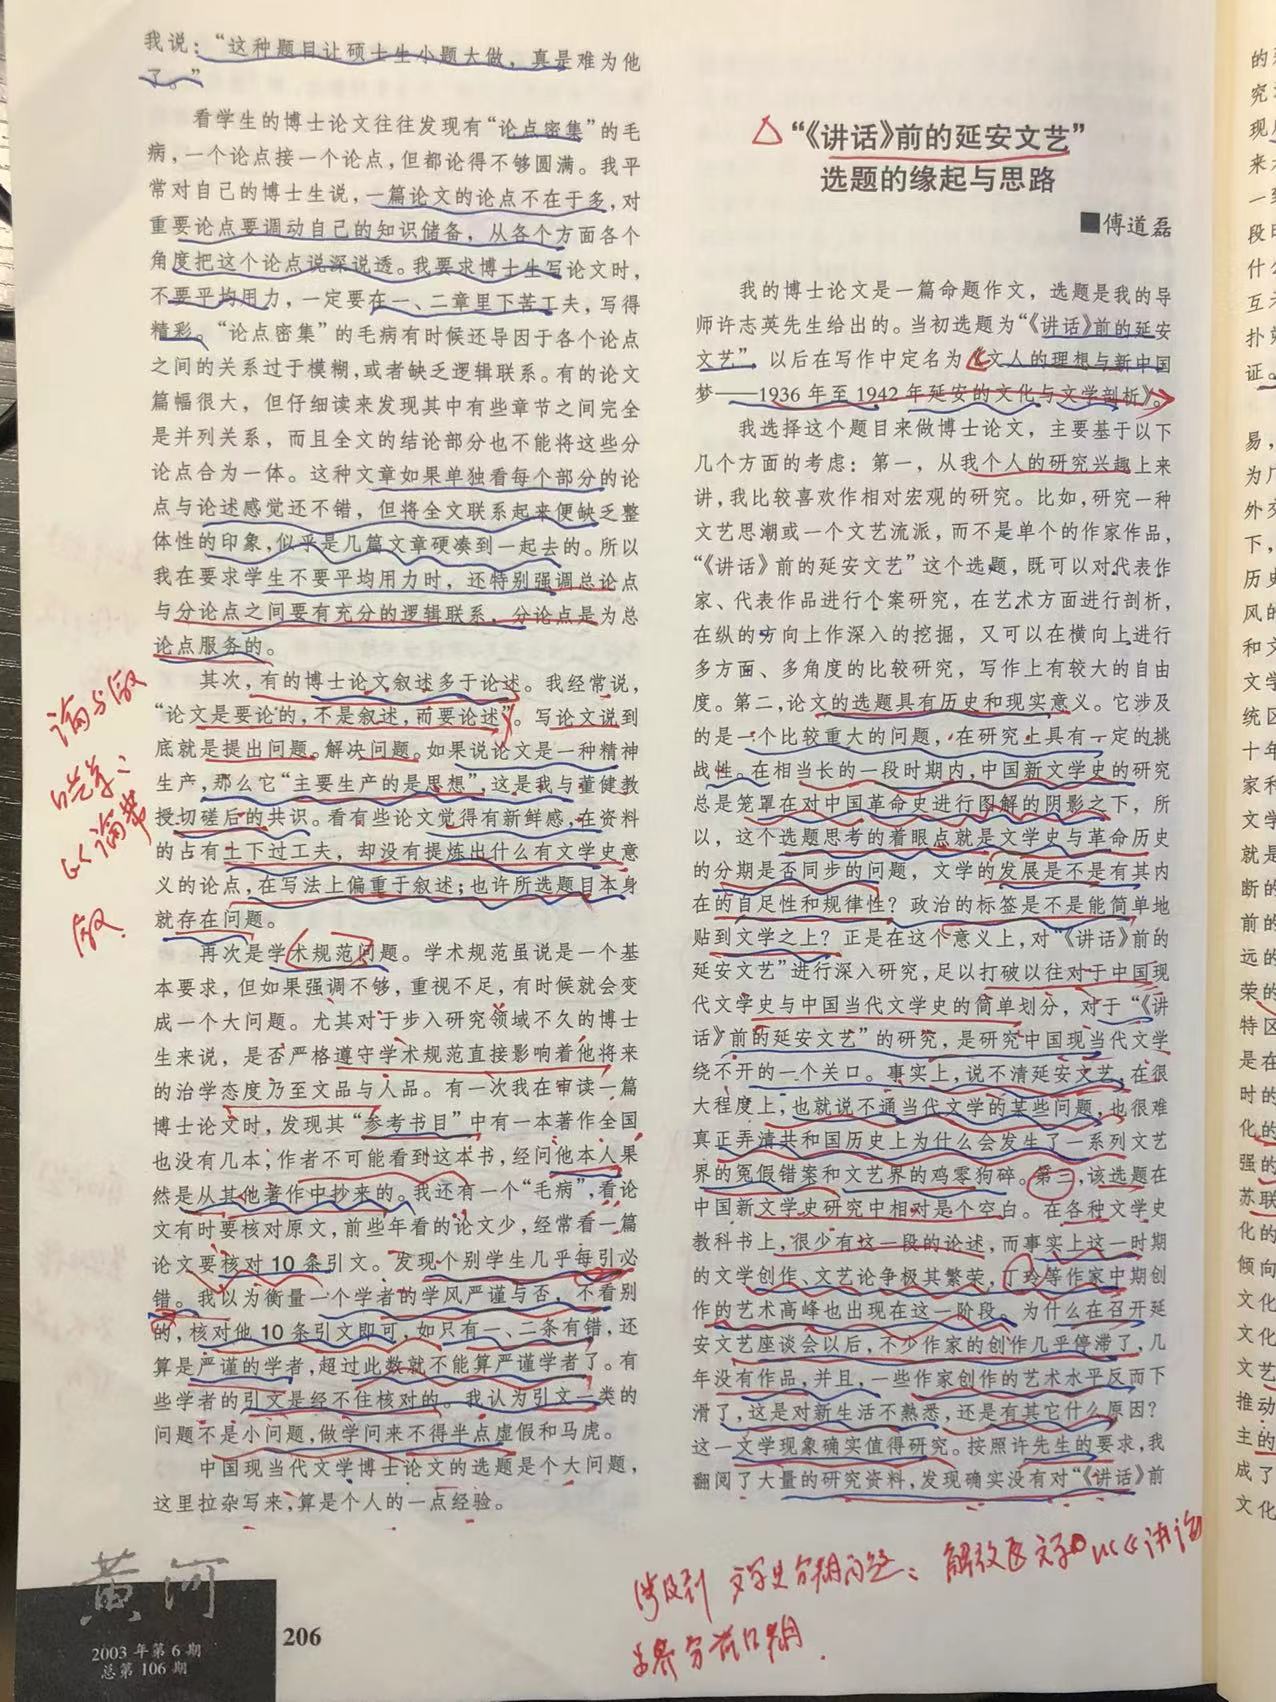 我说：“这种题目让硕士生小题大做，真是难为他
了。”
看学生的博士论文往往发现有“论点密集”的毛
病，一个论点接一个论点，但都论得不够圆满。我平
常对自己的博士生说，一篇论文的论点不在于多，对
重要论点要调动自己的知识储备，从各个方面各个
角度把这个论点说深说透。我要求博士生写论文时，
不要平均用力，一定要在一、二章里下苦工夫，写得
精彩。“论点密集”的毛病有时候还导因于各个论点
之间的关系过于模糊，或者缺乏逻辑联系。有的论文
篇幅很大，但仔细读来发现其中有些章节之间完全
是并列关系，而且全文的结论部分也不能将这些分
论点合为一体。这种文章如果单独看每个部分的论
点与论述感觉还不错，但将全文联系起来便缺乏整
体性的印象，似乎是几篇文章硬凑到一起去的。所以
我在要求学生不要平均用力时，还特别强调总论点
与分论点之间要有充分的逻辑联系，分论点是为总
论点服务的。
其次，有的博士论文叙述多于论述。我经常说，
“论文是要论的，不是叙述，而要论述”。写论文说到
底就是提出问题。解决问题。如果说论文是一种精神
生产，那么它“主要生产的是思想”，这是我与董健教
授切磋后的共识。看有些论文觉得有新鲜感，在资料
的占有上下过工夫，却没有提炼出什么有文学史意
义的论点，在写法上偏重于叙述；也许所选题目本身
就存在问题。
再次是学术规范问题。学术规范虽说是一个基
本要求，但如果强调不够，重视不足，有时候就会变
成一个大问题。尤其对于步入研究领域不久的博士
生来说，是否严格遵守学术规范直接影响着他将来
的治学态度乃至文品与人品。有一次我在审读一篇
博士论文时，发现其“参考书目”中有一本著作全国
也没有几本，作者不可能看到这本书，经问他本人果
然是从其他著作中抄来的。我还有一个“毛病”，看论
文有时要核对原文，前些年看的论文少，经常看一篇
论文要核对10条引文。发现个别学生几乎每引必
错。我以为衡量一个学者的学风严谨与否，不看别
的，核对他10条引文即可，如只有一、二条有错，还
算是严谨的学者，超过此数就不能算严谨学者了。有
些学者的引文是经不住核对的。我认为引文一类的
问题不是小问题，做学问来不得半点虚假和马虎。
中国现当代文学博士论文的选题是个大问题，
这里拉杂写来，算是个人的一点经验。
黄河
2003年第6期
总第106期
206
“《讲话》前的延安文艺”
选题的缘起与思路
■傅道磊
我的博士论文是一篇命题作文，选题是我的导
师许志英先生给出的。当初选题为“《讲话》前的延安
文艺”，以后在写作中定名为《文人的理想与新中国
梦——1936年至1942年延安的文化与文学剖析》。
我选择这个题目来做博士论文，主要基于以下
几个方面的考虑：第一，从我个人的研究兴趣上来
讲，我比较喜欢作相对宏观的研究。比如，研究一种
文艺思潮或一个文艺流派，而不是单个的作家作品，
“《讲话》前的延安文艺”这个选题，既可以对代表作
家、代表作品进行个案研究，在艺术方面进行剖析，
在纵的方向上作深入的挖掘，又可以在横向上进行
多方面、多角度的比较研究，写作上有较大的自由
度。第二，论文的选题具有历史和现实意义。它涉及
的是一个比较重大的问题，在研究上具有一定的挑
战性。在相当长的一段时期内，中国新文学史的研究
总是笼罩在对中国革命史进行图解的阴影之下，所
以，这个选题思考的着眼点就是文学史与革命历史
的分期是否同步的问题，文学的发展是不是有其内
在的自足性和规律性？政治的标签是不是能简单地
贴到文学之上？正是在这个意义上，对“《讲话》前的
延安文艺”进行深入研究，足以打破以往对于中国现
代文学史与中国当代文学史的简单划分，对于“《讲
话》前的延安文艺”的研究，是研究中国现当代文学
绕不开的一个关口。事实上，说不清延安文艺，在很
大程度上，也就说不通当代文学的某些问题，也很难
真正弄清共和国历史上为什么会发生了一系列文艺
界的冤假错案和文艺界的鸡零狗碎。第三，该选题在
中国新文学史研究中相对是个空白。在各种文学史
教科书上，很少有这一段的论述，而事实上这一时期
的文学创作、文艺论争极其繁荣，丁玲等作家中期创
作的艺术高峰也出现在这一阶段。为什么在召开延
安文艺座谈会以后，不少作家的创作几乎停滞了，几
年没有作品，并且，一些作家创作的艺术水平反而下
滑了，这是对新生活不熟悉，还是有其它什么原因？
这一文学现象确实值得研究。按照许先生的要求，我
翻阅了大量的研究资料，发现确实没有对“《讲话》前